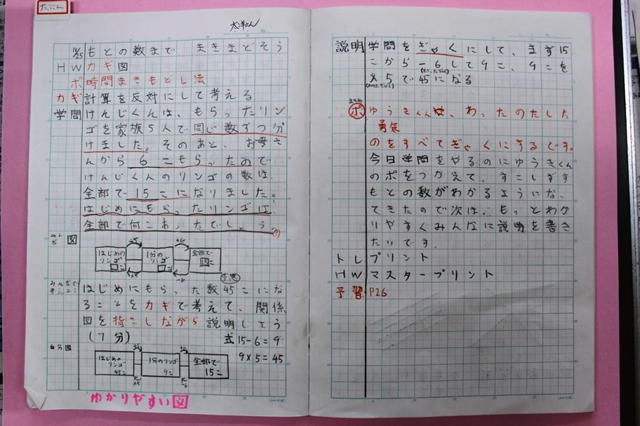 もとの数まで まきもどそう
HW カギ図
ポ 時間まきもどし法
カギ 計算を反対にして考える
学問 けんじくんは、もらったリン
ゴを家族5人で同じ数ずつ分
けました。そのあと、お母さ
んから6こもらったので
けんじくんのリンゴの数は
全部で15こになりました。
はじめにもらったリンゴは
全部で何こあったでしょう
図
はじめの
リンゴ
1分の
リンゴ
全部で
15こ
はじめにもらった数45こにな
ることをカギで考えて、関係
図を指こしながら説明しよう
(7分)
式15-6=9
9×5=45
自分図
はじめの
リンゴ
45こ
1分のリンゴ
9こ
全部で
15こ
わかりやすい図
説明 学問をぎゃくにして、まず15
こから-6して9こ、9こを
×5で45になる
ポ ゆうきくんは、あったのたした
のをすべてぎゃくにするです。
今日学問をやるのにゆうきくん
のポをつかえて、すこしずつ
もとの数がわかるようになっ
てきたので次は、もっとわか
りやすくみんなに説明を書き
たいです。
トレプリント
HW マスタープリント
予習 P26